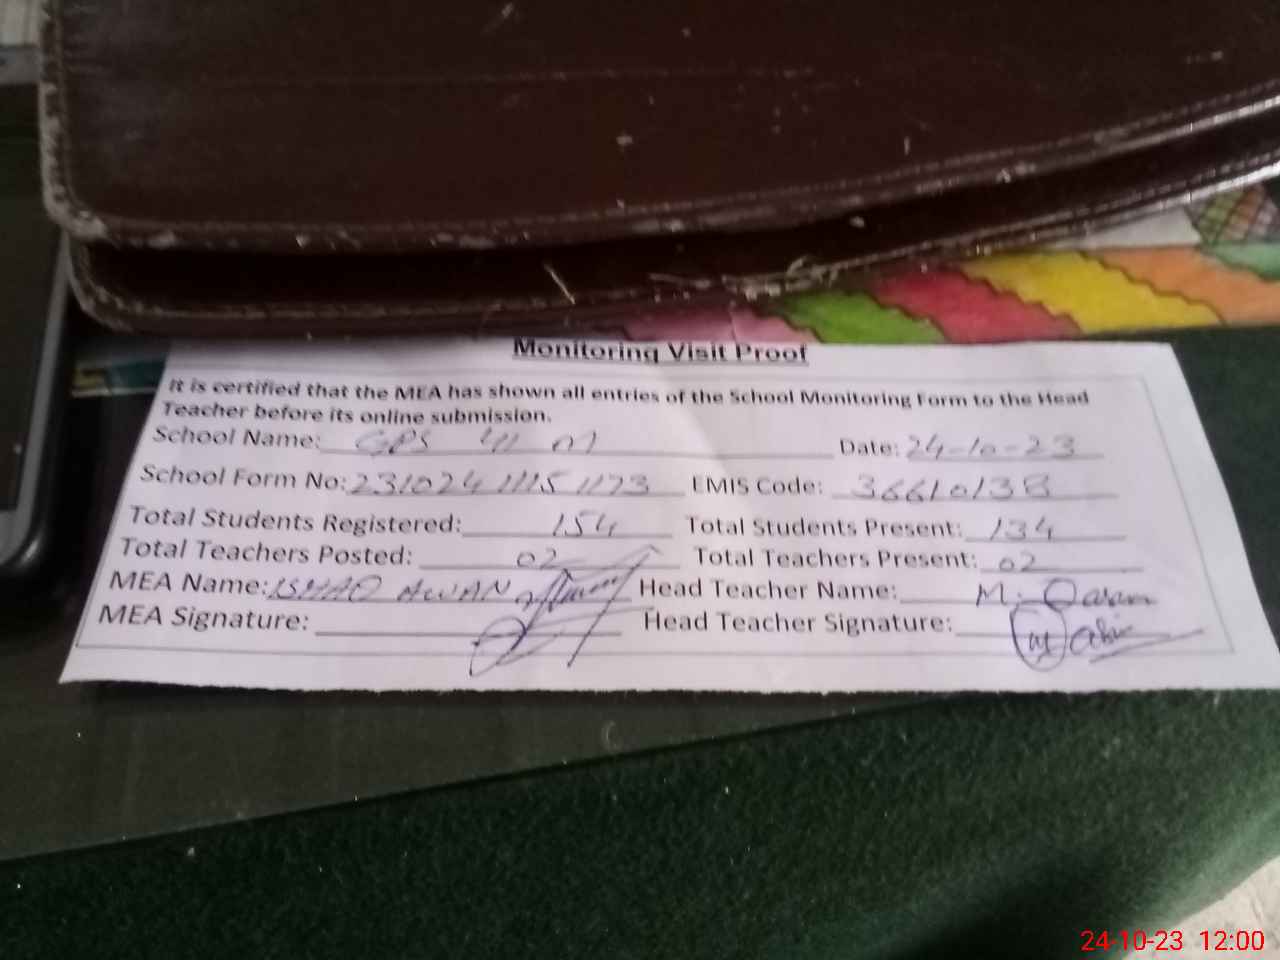 Monitoring Visit Proof
It is certified that the MEA has shown all entries of the School Monitoring Form to the Head
Teacher before its online submission.
School Name: GPS 411 M Date: 24-10-23
School Form No: 231024111151173 EMIS Code: 36610138
Total Students Registered: 154 Total Students Present: 134
Total Teachers Posted: 02 Total Teachers Present: 02
MEA Name: ISHAQ AWAN Head Teacher Name: M.
MEA Signature: Head Teacher Signature:
24-10-23 12:00